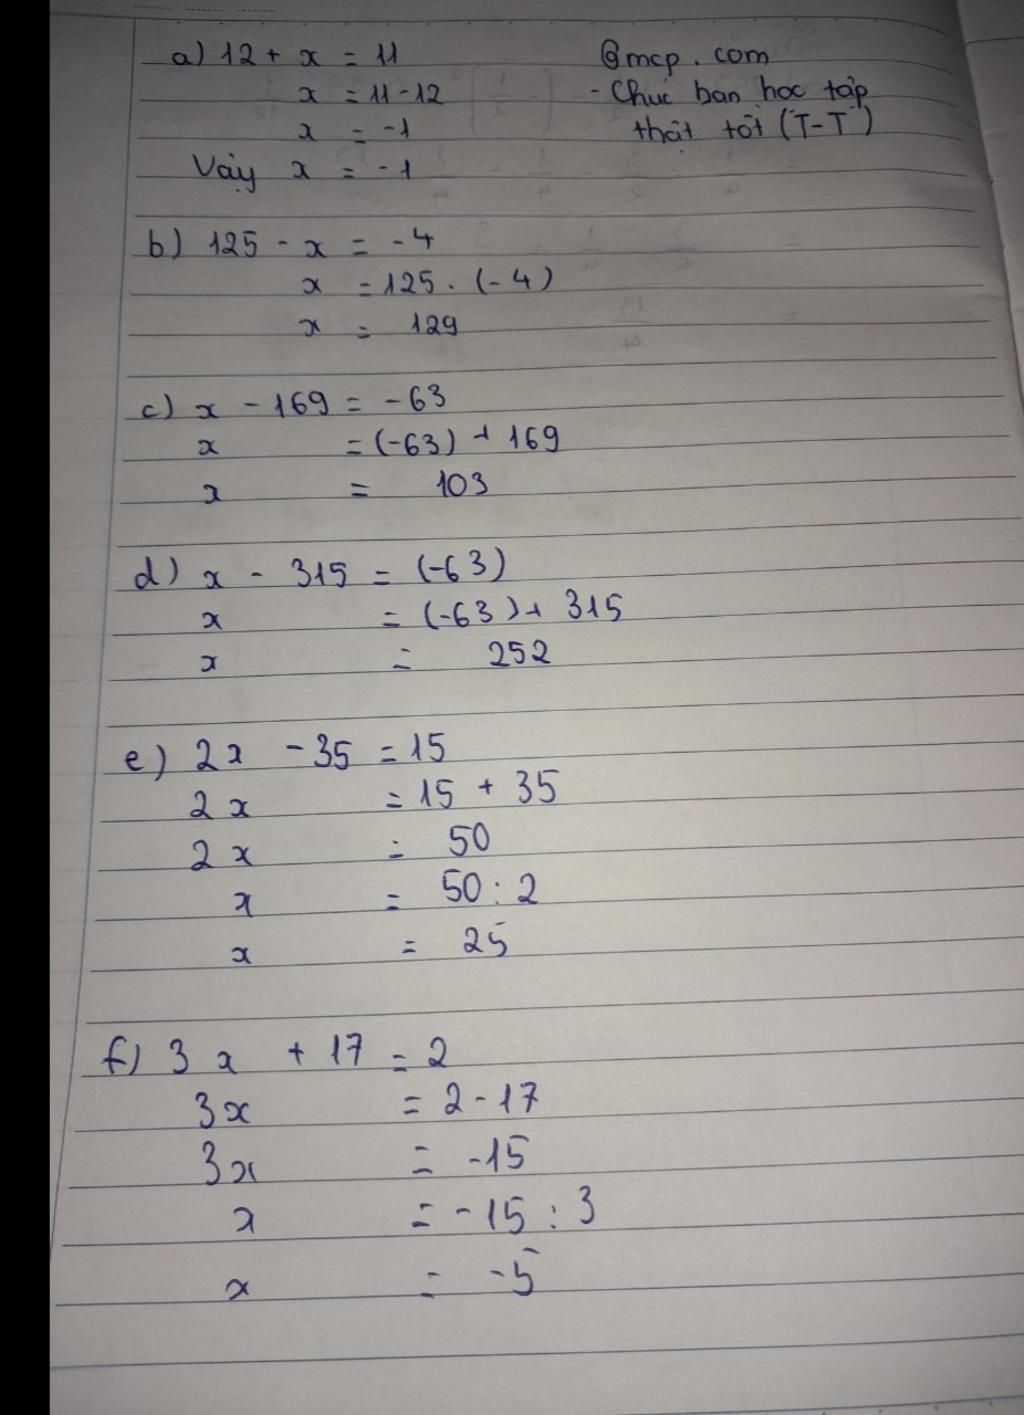 a) 12 + x = 11
x = 11 - 12
x = -1
Vậy x = -1
@mcp.com
- Chúc bạn học tập
thật tốt (T-T)
b) 125 - x = -4
x = 125 . (-4)
x = 129
c) x - 169 = -63
x = (-63) + 169
x = 103
d) x - 315 = (-63)
x = (-63) + 315
x = 252
e) 2x - 35 = 15
2x = 15 + 35
2x = 50
x = 50 : 2
x = 25
f) 3x + 17 = 2
3x = 2 - 17
3x = -15
x = -15 : 3
x = -5